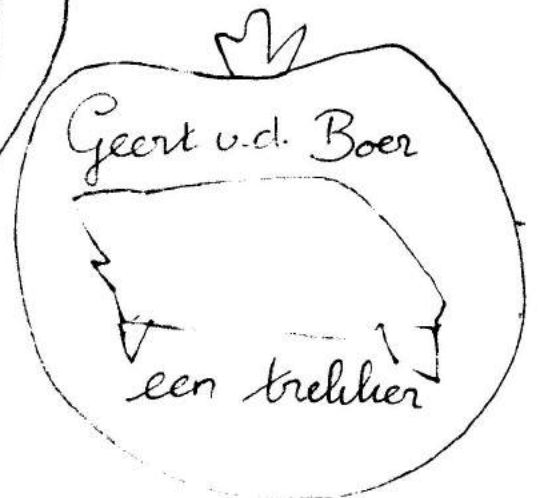 Geert v.d. Boer
een trekker